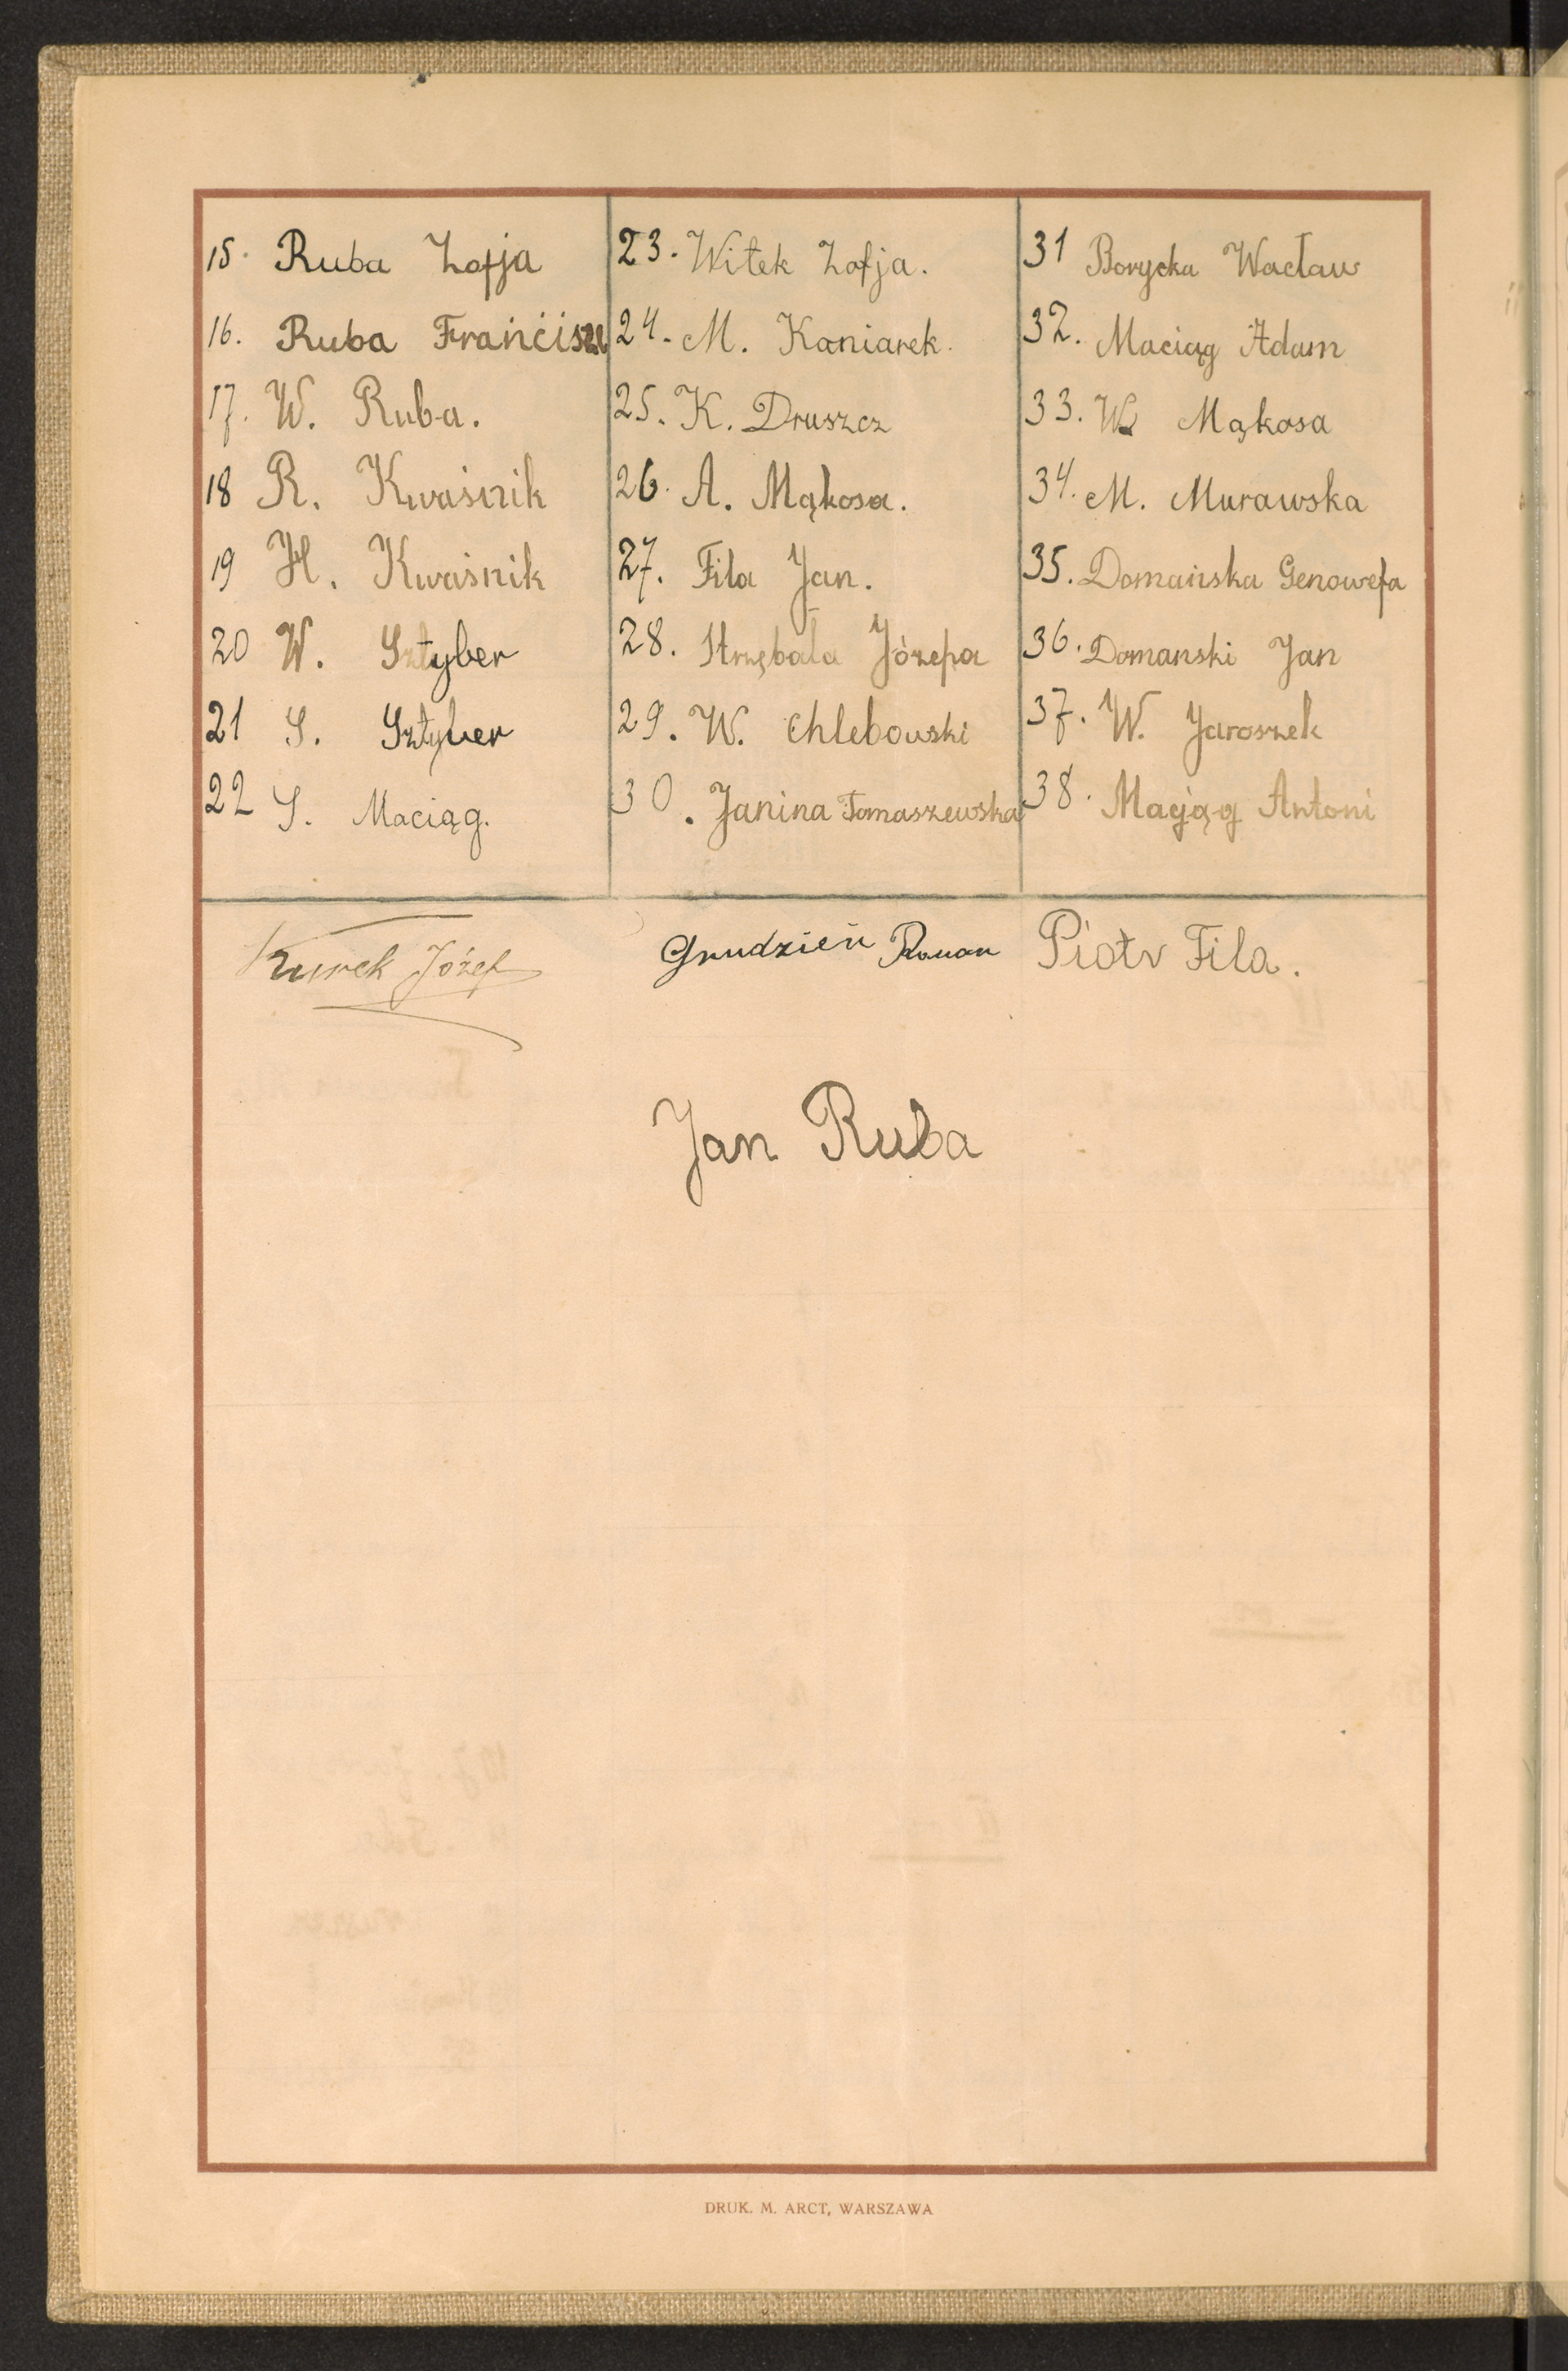 15. Ruba Zofja
16. Ruba Franćiszek
17. W. Ruba.
18 R. Kwaśnik
19 H. Kwaśnik
20 W. Sztyber
21 S. Sztyber
22 S. Maciąg.
23. Witek Zofja.
24. M. Kaniarek.
25. K. Druszcz
26. A. Mąkosa.
27. Fila Jan.
28. Strzębała Józefa
29. W. Chlebowski
30. Janina Tomaszewska
31 Borycka Wacław
32. Maciąg Adam
33. W. Mąkosa
34. M. Murawska
35. Domańska Genowefa
36. Domanski Jan
37. W. Jaroszek
38. Macjąg Antoni
Kurek Józef
Grudzień Roman
Piotr Fila.
Jan Ruba
DRUK. M. ARCT, WARSZAWA